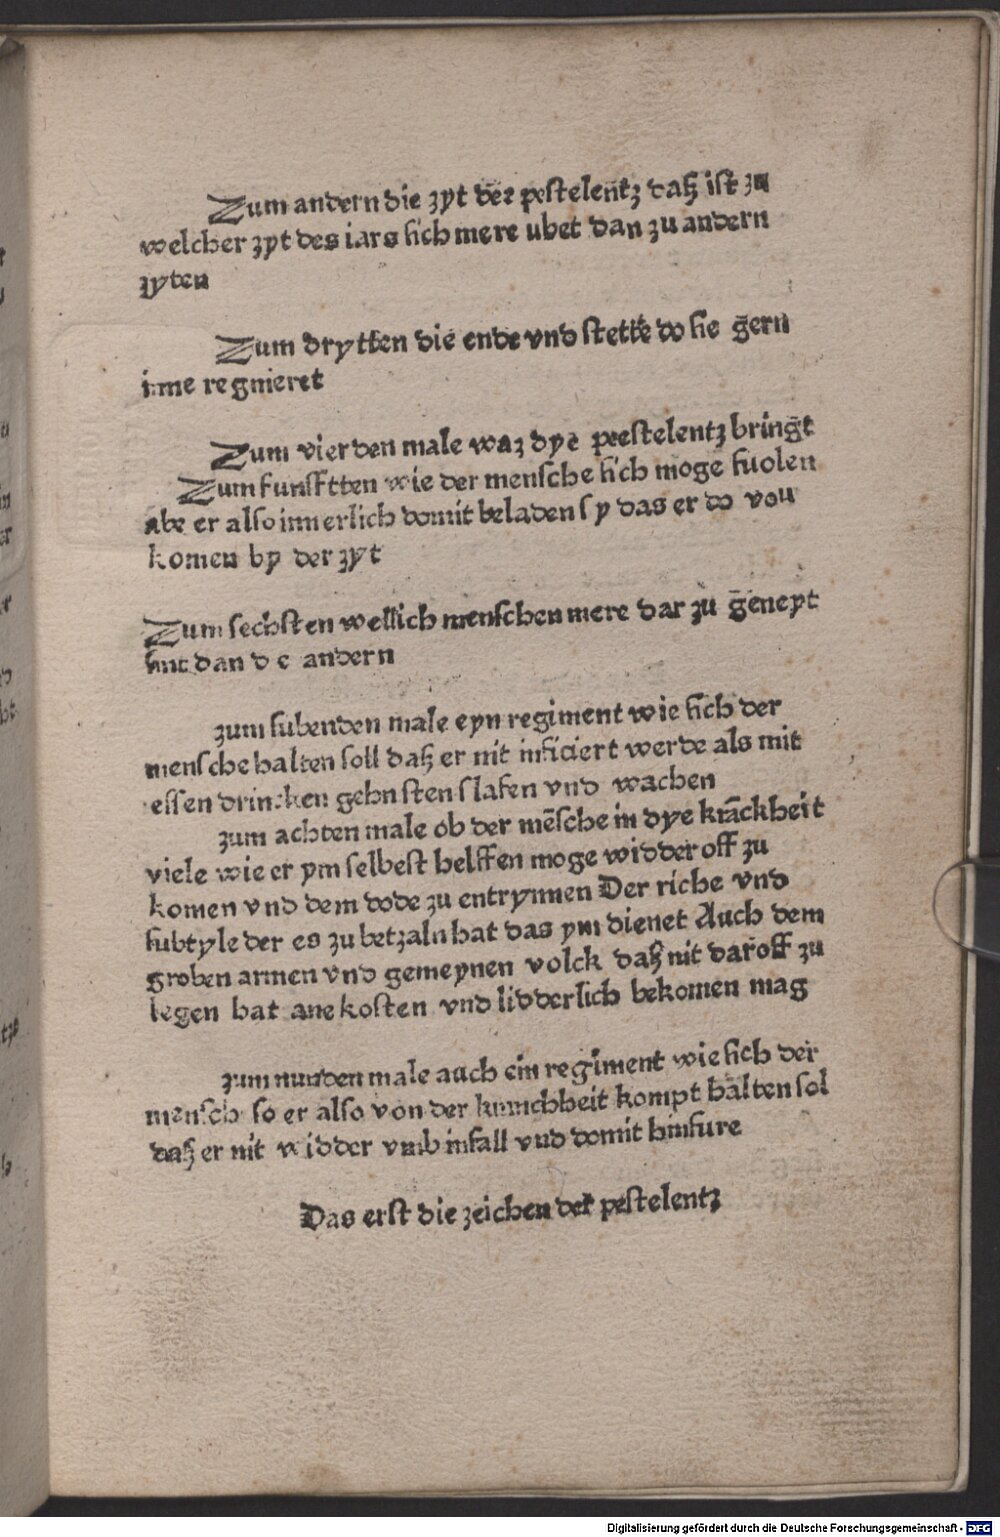 Zum andern die zyt der pestelentz daß ist zu
welcher zyt des iars sich mere ubet dan zu andern
zyten
Zum drytten die ende vnd stette do sie gern
inne regnieret
Zum vierden male waz dye peestelentz bringt
Zum funfftten wie der mensche sich moge fuolen
abe er also innerlich domit beladen sy das er do von
komen by der zyt
Zum sechsten wellich menschen mere dar zu geneyt
sint dan de andern
zum subenden male eyn regiment wie sich der
mensche halten soll daß er nit inficiert werde als mit
essen drincken gehn sten slafen vnd wachen
zum achten male ob der mēsche in dye krāckheit
viele wie er ym selbest helffen moge widder off zu
komen vnd dem dode zu entrynnen Der riche vnd
subtyle der es zu betzaln hat das ym dienet Auch dem
groben armen vnd gemeynen volck daß nit daroff zu
legen hat ane kosten vnd lidderlich bekomen mag
zum nunden male auch ein regiment wie sich der
mensch so er also von der kranchheit kompt halten sol
daß er nit widder vmb infall vnd domit hinfure
Das erst die zeichen der pestelentz
Digitalisierung gefördert durch die Deutsche Forschungsgemeinschaft - DFG